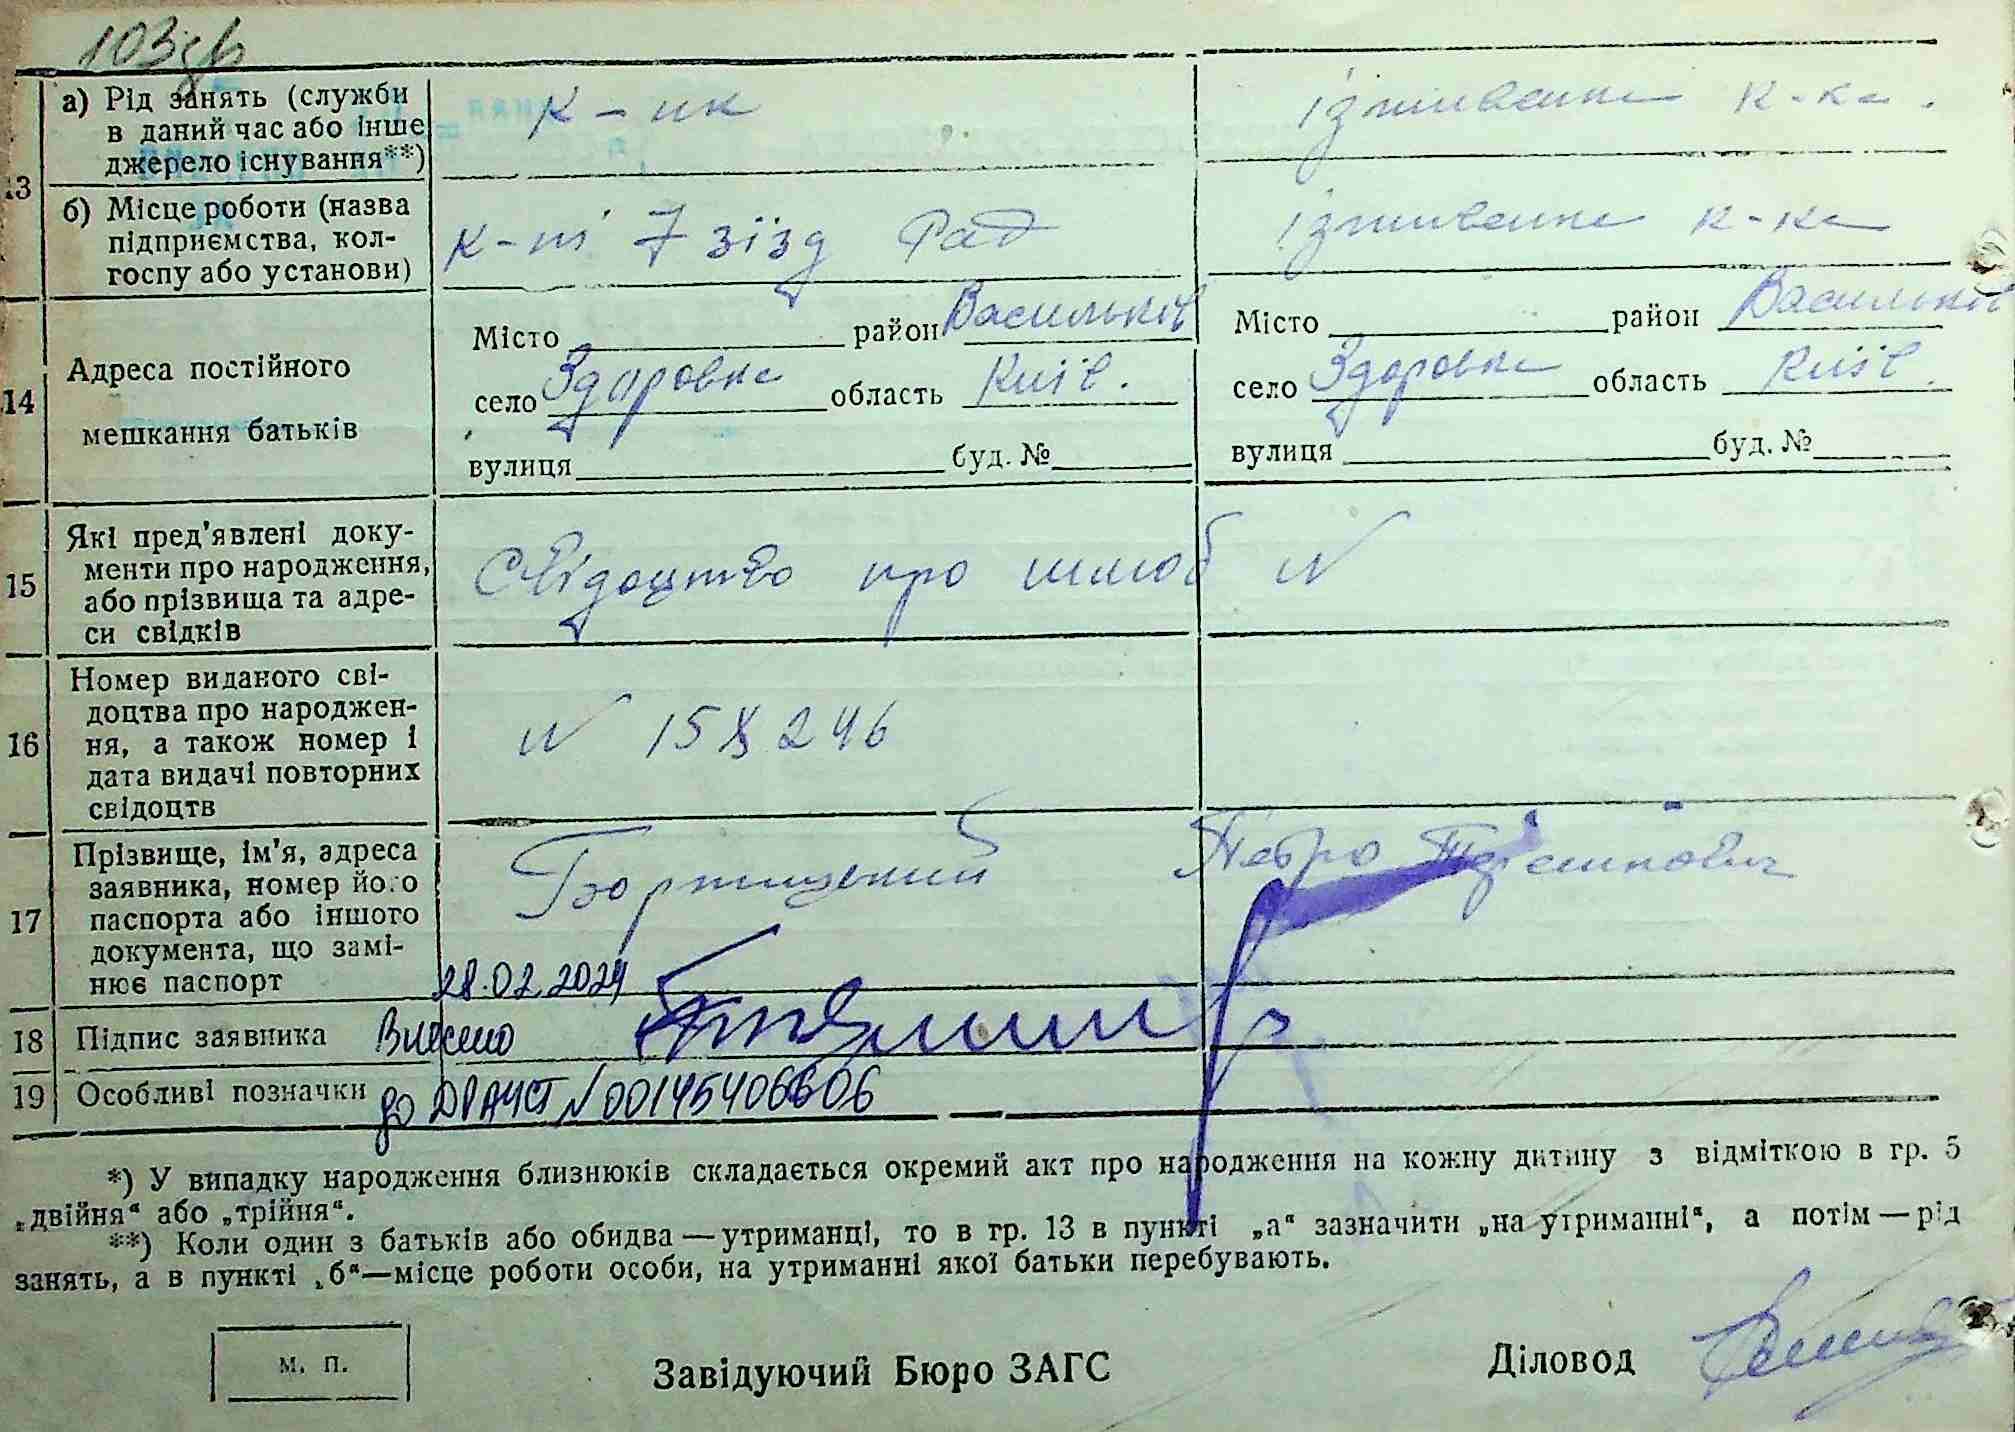 103зв
13
а) Рід занять (служби
в даний час або інше
джерело існування**)
к-ик
іждивенка к-ка.
б) Місце роботи (назва
підприємства, кол-
госпу або установи)
к-п 7 зїзд Рад
іждивенка к-ка
14
Адреса постійного
мешкання батьків
Місто район Васильків
село Здоровка область Київ.
вулиця буд. №
Місто район Васильків
село Здоровка область Київ.
вулиця буд. №
15
Які пред'явлені доку-
менти про народження,
або прізвища та адре-
си свідків
Свідоцтво про шлюб N
16
Номер виданого сві-
доцтва про народжен-
ня, а також номер і
дата видачі повторних
свідоцтв
N 158246
17
Прізвище, ім'я, адреса
заявника, номер його
паспорта або іншого
документа, що замі-
нює паспорт
Петро
28.02.2024
18 Підпис заявника Внесено
19 Особливі позначки до ДРАЦСГ N 00145406606
*) У випадку народження близнюків складається окремий акт про народження на кожну дитину з відміткою в гр. 5
„двійня“ або „трійня“.
**) Коли один з батьків або обидва — утриманці, то в гр. 13 в пункті „а“ зазначити „на утриманні“, а потім — рід
занять, а в пункті „б“—місце роботи особи, на утриманні якої батьки перебувають.
м. п.
Завідуючий Бюро ЗАГС
Діловод